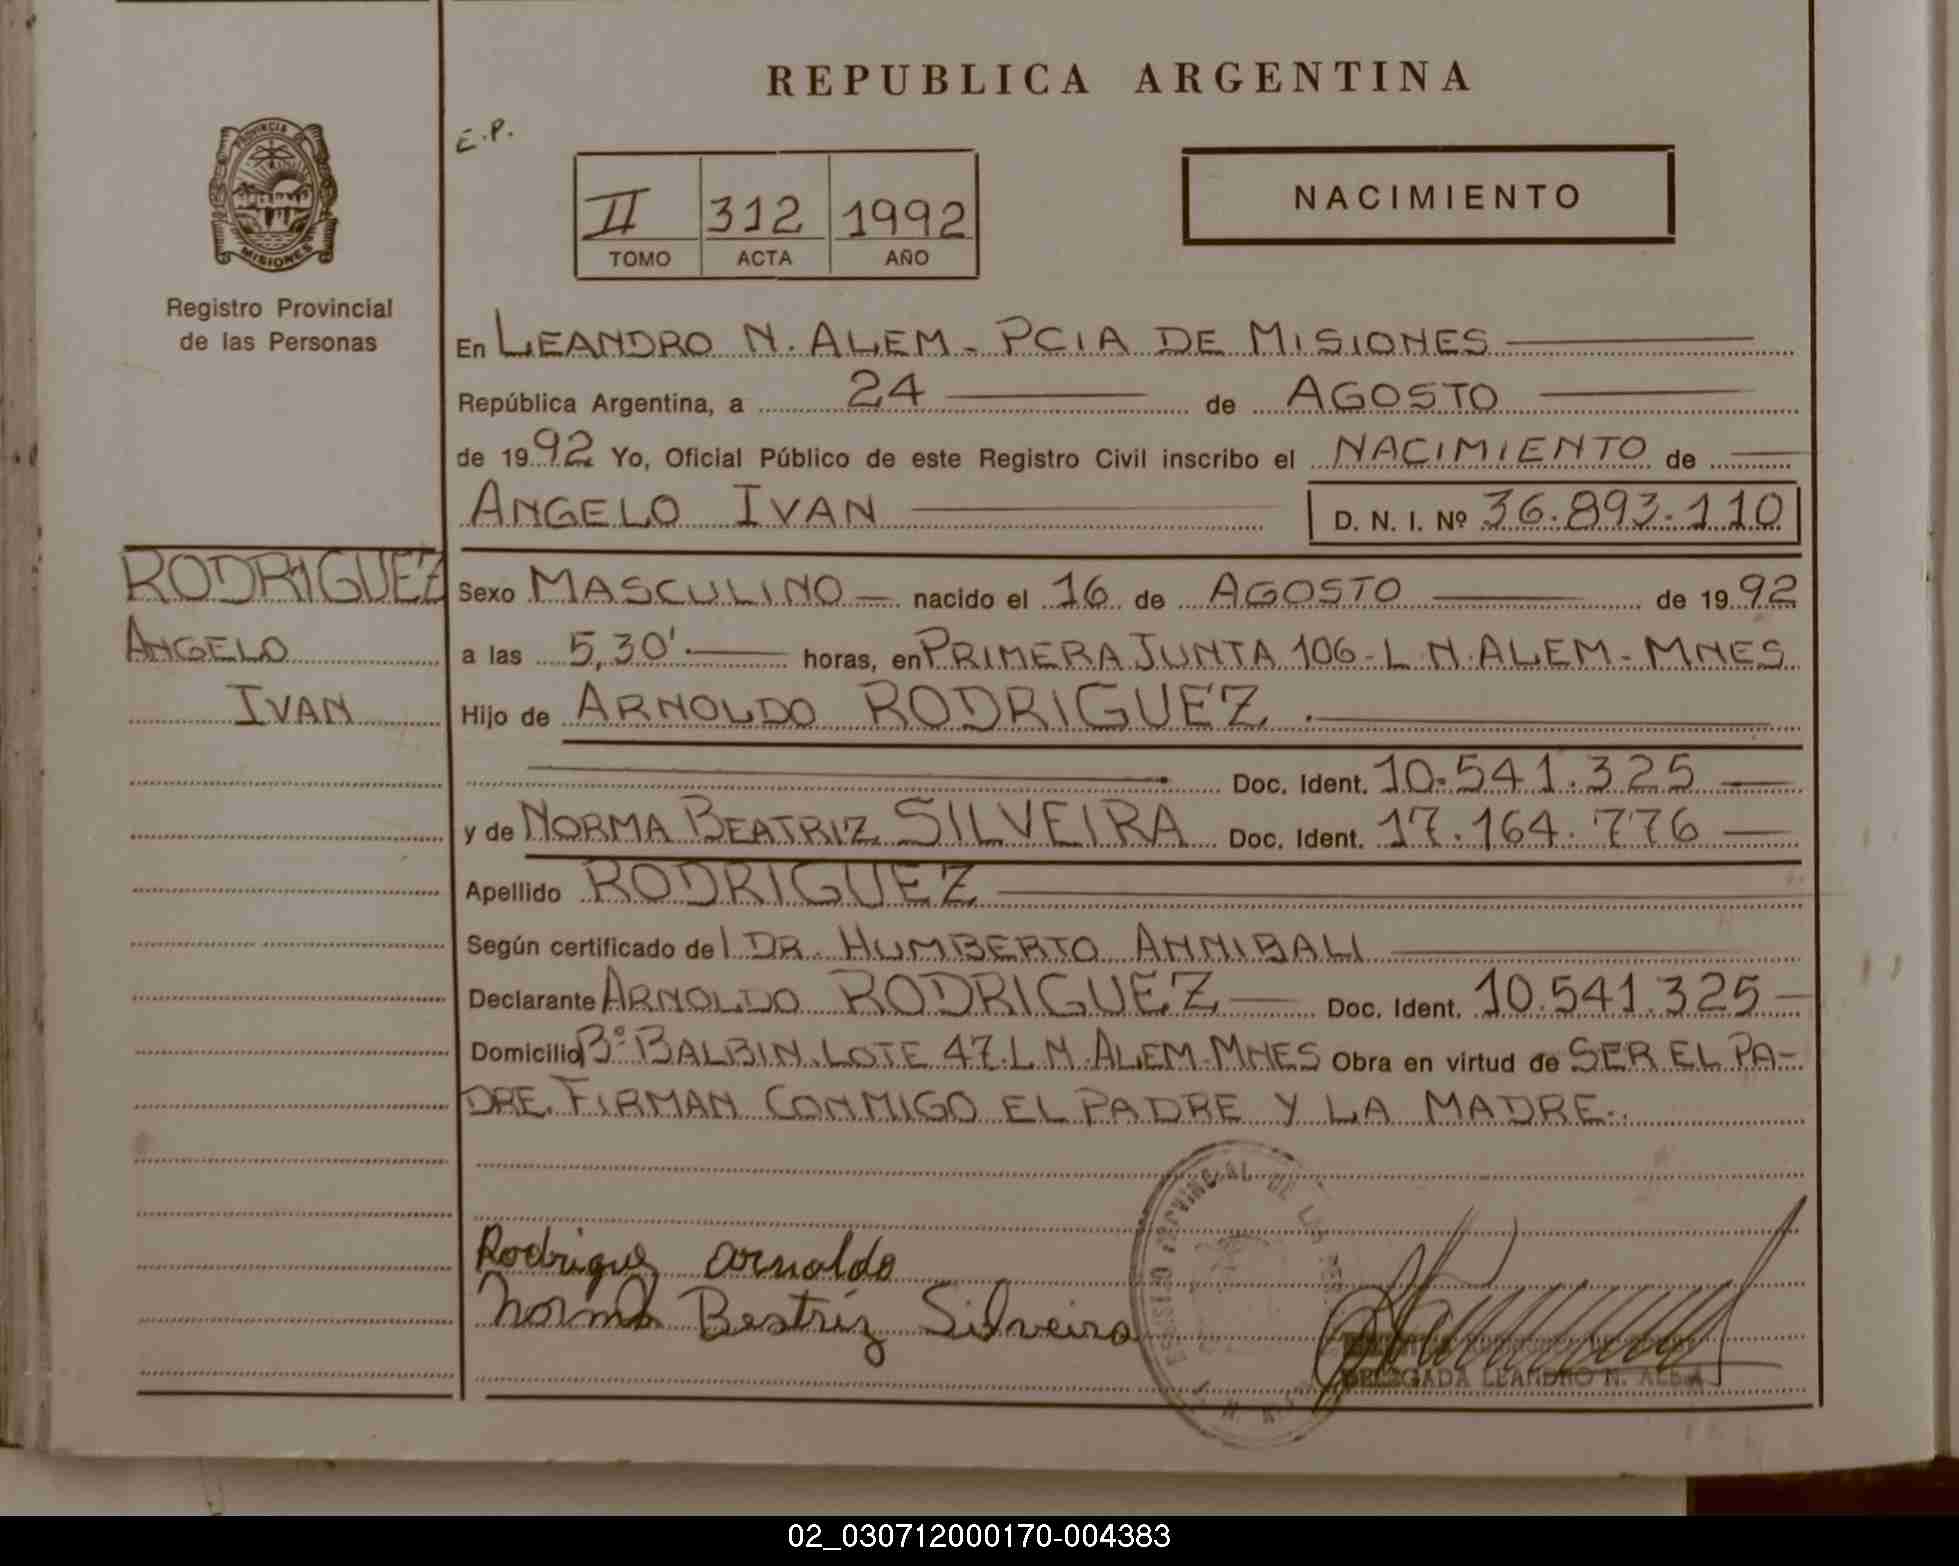 REPUBLICA ARGENTINA
PROVINCIA
MISIONES
Registro Provincial
de las Personas
E.P.
II 312 1992
TOMO ACTA AÑO
NACIMIENTO
En LEANDRO N. ALEM - PCIA DE MISIONES
República Argentina, a 24 de AGOSTO
de 1992 Yo, Oficial Público de este Registro Civil inscribo el NACIMIENTO de
ANGELO IVAN D. N. I. Nº 36.893.110
RODRIGUEZ
ANGELO
IVAN
Sexo MASCULINO nacido el 16 de AGOSTO de 1992
a las 5,30' horas, en PRIMERA JUNTA 106 - L N. ALEM - MNES
Hijo de ARNOLDO RODRIGUEZ.
Doc. Ident. 10.541.325
y de NORMA BEATRIZ SILVEIRA Doc. Ident. 17.164.776
Apellido RODRIGUEZ
Según certificado del DR. HUMBERTO ANNIBALI
Declarante ARNOLDO RODRIGUEZ Doc. Ident. 10.541.325
Domicilio Bº BALBIN. LOTE 47. L N. ALEM - MNES Obra en virtud de SER EL PA-
DRE. FIRMAN CONMIGO EL PADRE Y LA MADRE.
Rodriguez Arnoldo
Norma Beatriz Silveira
REGISTRO PROVINCIAL DE LAS
DELEGADA LEANDRO N. ALEM
02_030712000170-004383